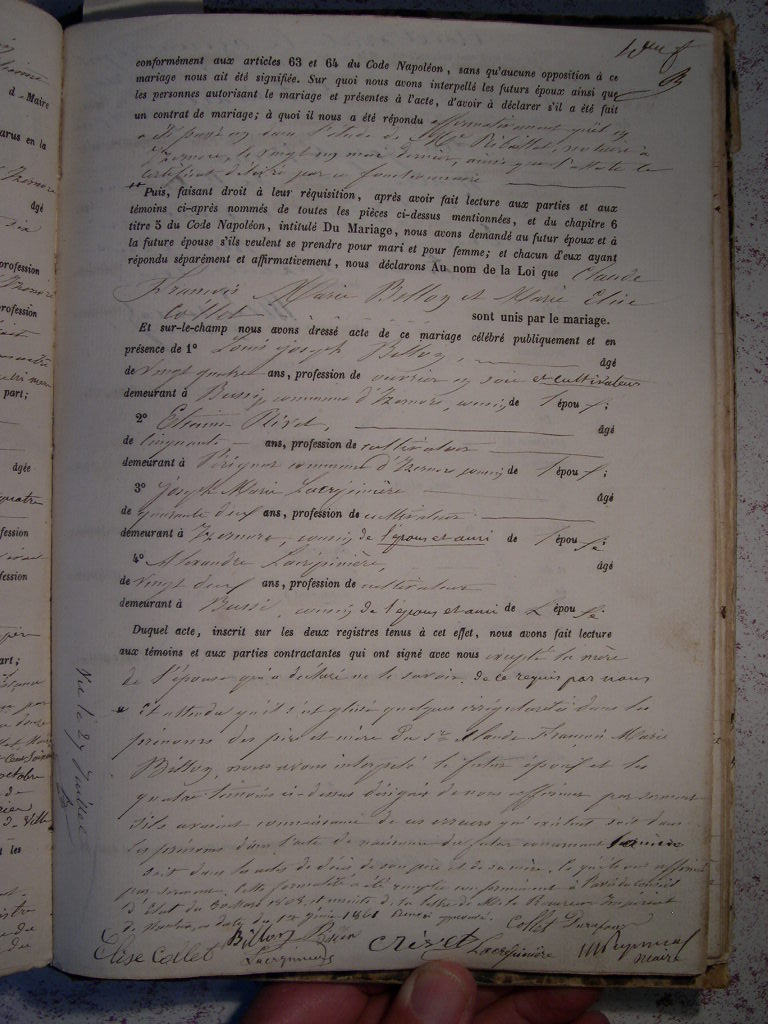 conformément aux articles 63 et 64 du Code Napoléon, sans qu'aucune opposition à ce
mariage nous ait été signifiée. Sur quoi nous avons interpellé les futurs époux ainsi que
les personnes autorisant le mariage et présentes à l'acte, d'avoir à déclarer s'il a été fait
un contrat de mariage; à quoi il nous a été répondu affirmativement qu'il y
a été passé en dans l'étude de Me notaire à
Izernore, le vingt mai dernier, ainsi que l'atteste le
certificat délivré par ce fonctionnaire
Puis, faisant droit à leur réquisition, après avoir fait lecture aux parties et aux
témoins ci-après nommés de toutes les pièces ci-dessus mentionnées, et du chapitre 6
titre 5 du Code Napoléon, intitulé Du Mariage, nous avons demandé au futur époux et à
la future épouse s'ils veulent se prendre pour mari et pour femme; et chacun d'eux ayant
répondu séparément et affirmativement, nous déclarons Au nom de la Loi que Claude
François Marie Billon et Marie Elise
Collet sont unis par le mariage.
Et sur-le-champ nous avons dressé acte de ce mariage célébré publiquement et en
présence de 1° Louis Joseph Billon, âgé
de vingt quatre ans, profession de ouvrier en soie et cultivateur
demeurant à commune d'Izernore, cousin de l'époux;
2° Etienne Rivet, âgé
de cinquante ans, profession de cultivateur
demeurant à Pérignat commune d'Izernore cousin de l'époux;
3° Joseph Marie Lacrépinière âgé
de quarante neuf ans, profession de cultivateur
demeurant à Izernore, cousin de l'époux et aussi de l'épouse
4° Alexandre Lacrépinière, âgé
de vingt neuf ans, profession de cultivateur
demeurant à cousin de l'époux et aussi de L'épouse
Duquel acte, inscrit sur les deux registres tenus à cet effet, nous avons fait lecture
aux témoins et aux parties contractantes qui ont signé avec nous excepté la mère
de l'épouse qui a déclaré ne le savoir, de ce requis par nous
Et attendu qu'il s'est glissé quelques irrégularités dans les
prénoms des père et mère du Sr Claude François Marie
Billon, nous avons interpelé le futur époux et les
quatre témoins ci-dessus désignés de nous affirmer par serment
s'ils avaient connaissance de ces erreurs qui existent soit dans
les prénoms dans l'acte de naissance du futur
soit dans les actes de décès de son père et de sa mère, ce qu'ils ont affirmé
par serment. Cette formalité a été remplie conformément à l'avis du conseil
d'Etat du 30 mars 1808, et ensuite de la lettre de Mr le Procureur Impérial
de Nantua, en date du 1861
Collet
Elise Collet Billon Rivet Lacrépinière
maire
Vu le 27 Juillet
d Maire
arus en la
âgé
profession
rofession
part;
âgée
quatre
fession
fession
art;
octobre
t les